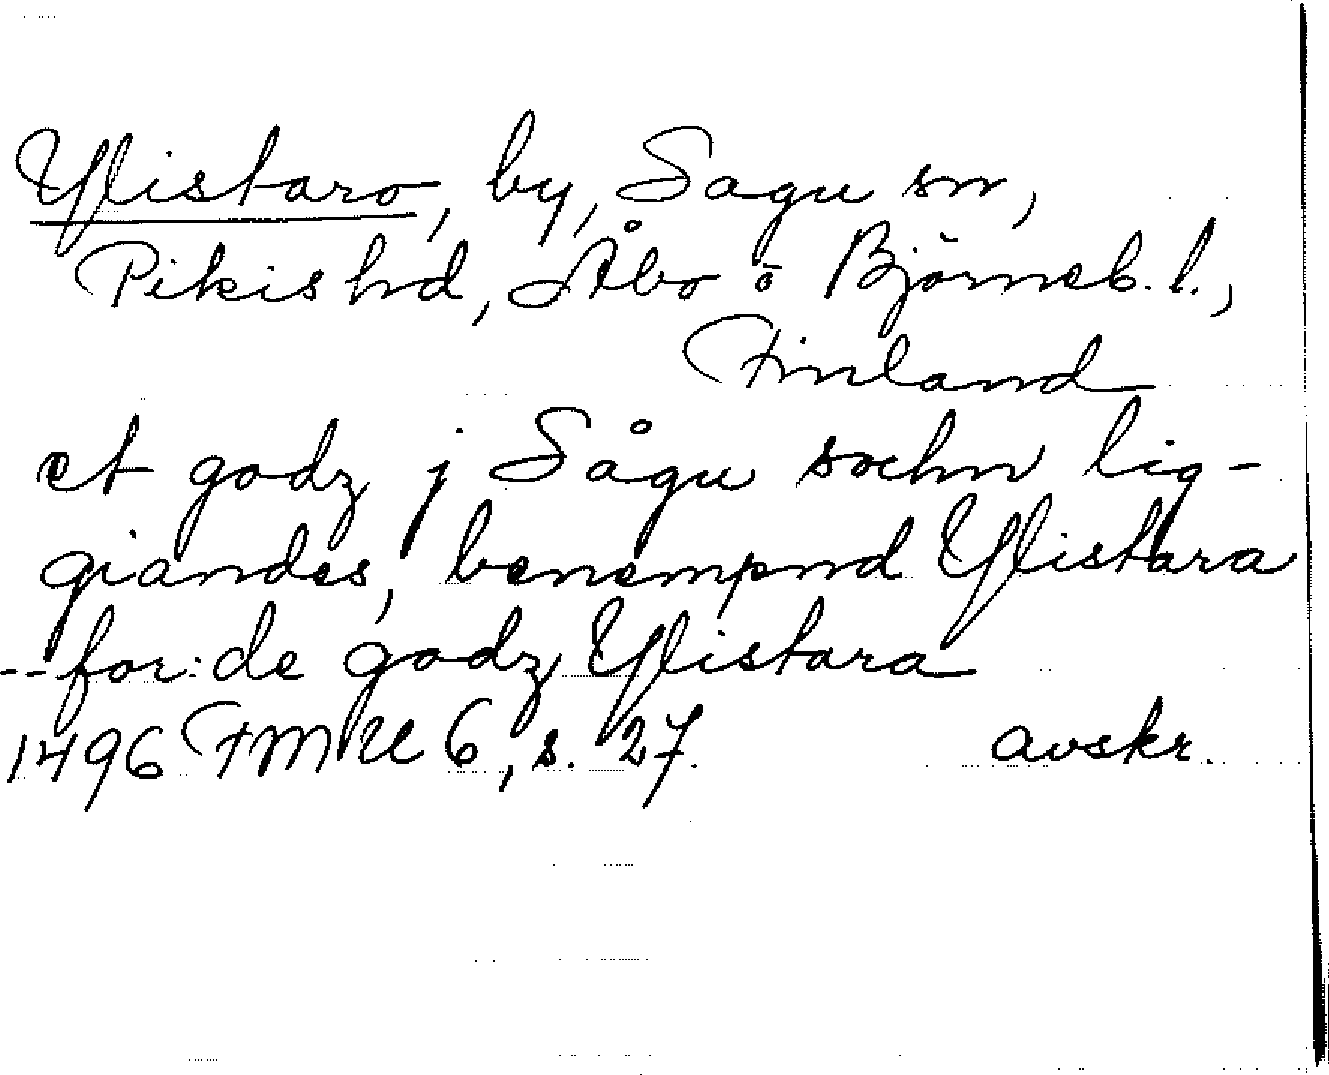 Ylistaro, by, Sagu sn,
Pikis hd, Åbo o Björneb. l.,
Finland
et godz j Sågu sochn lig-
giandes, benempnd Ylistara
-- for:de godz Ylistara
1496 FMU 6, s. 27. avskr.